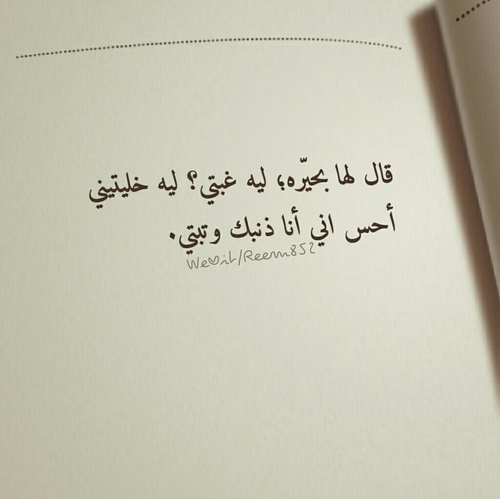 قال لها بحيّره؛ ليه غبتي؟ ليه خليتيني
أحس اني أنا ذنبك وتبتي.
We♡it/Reem852